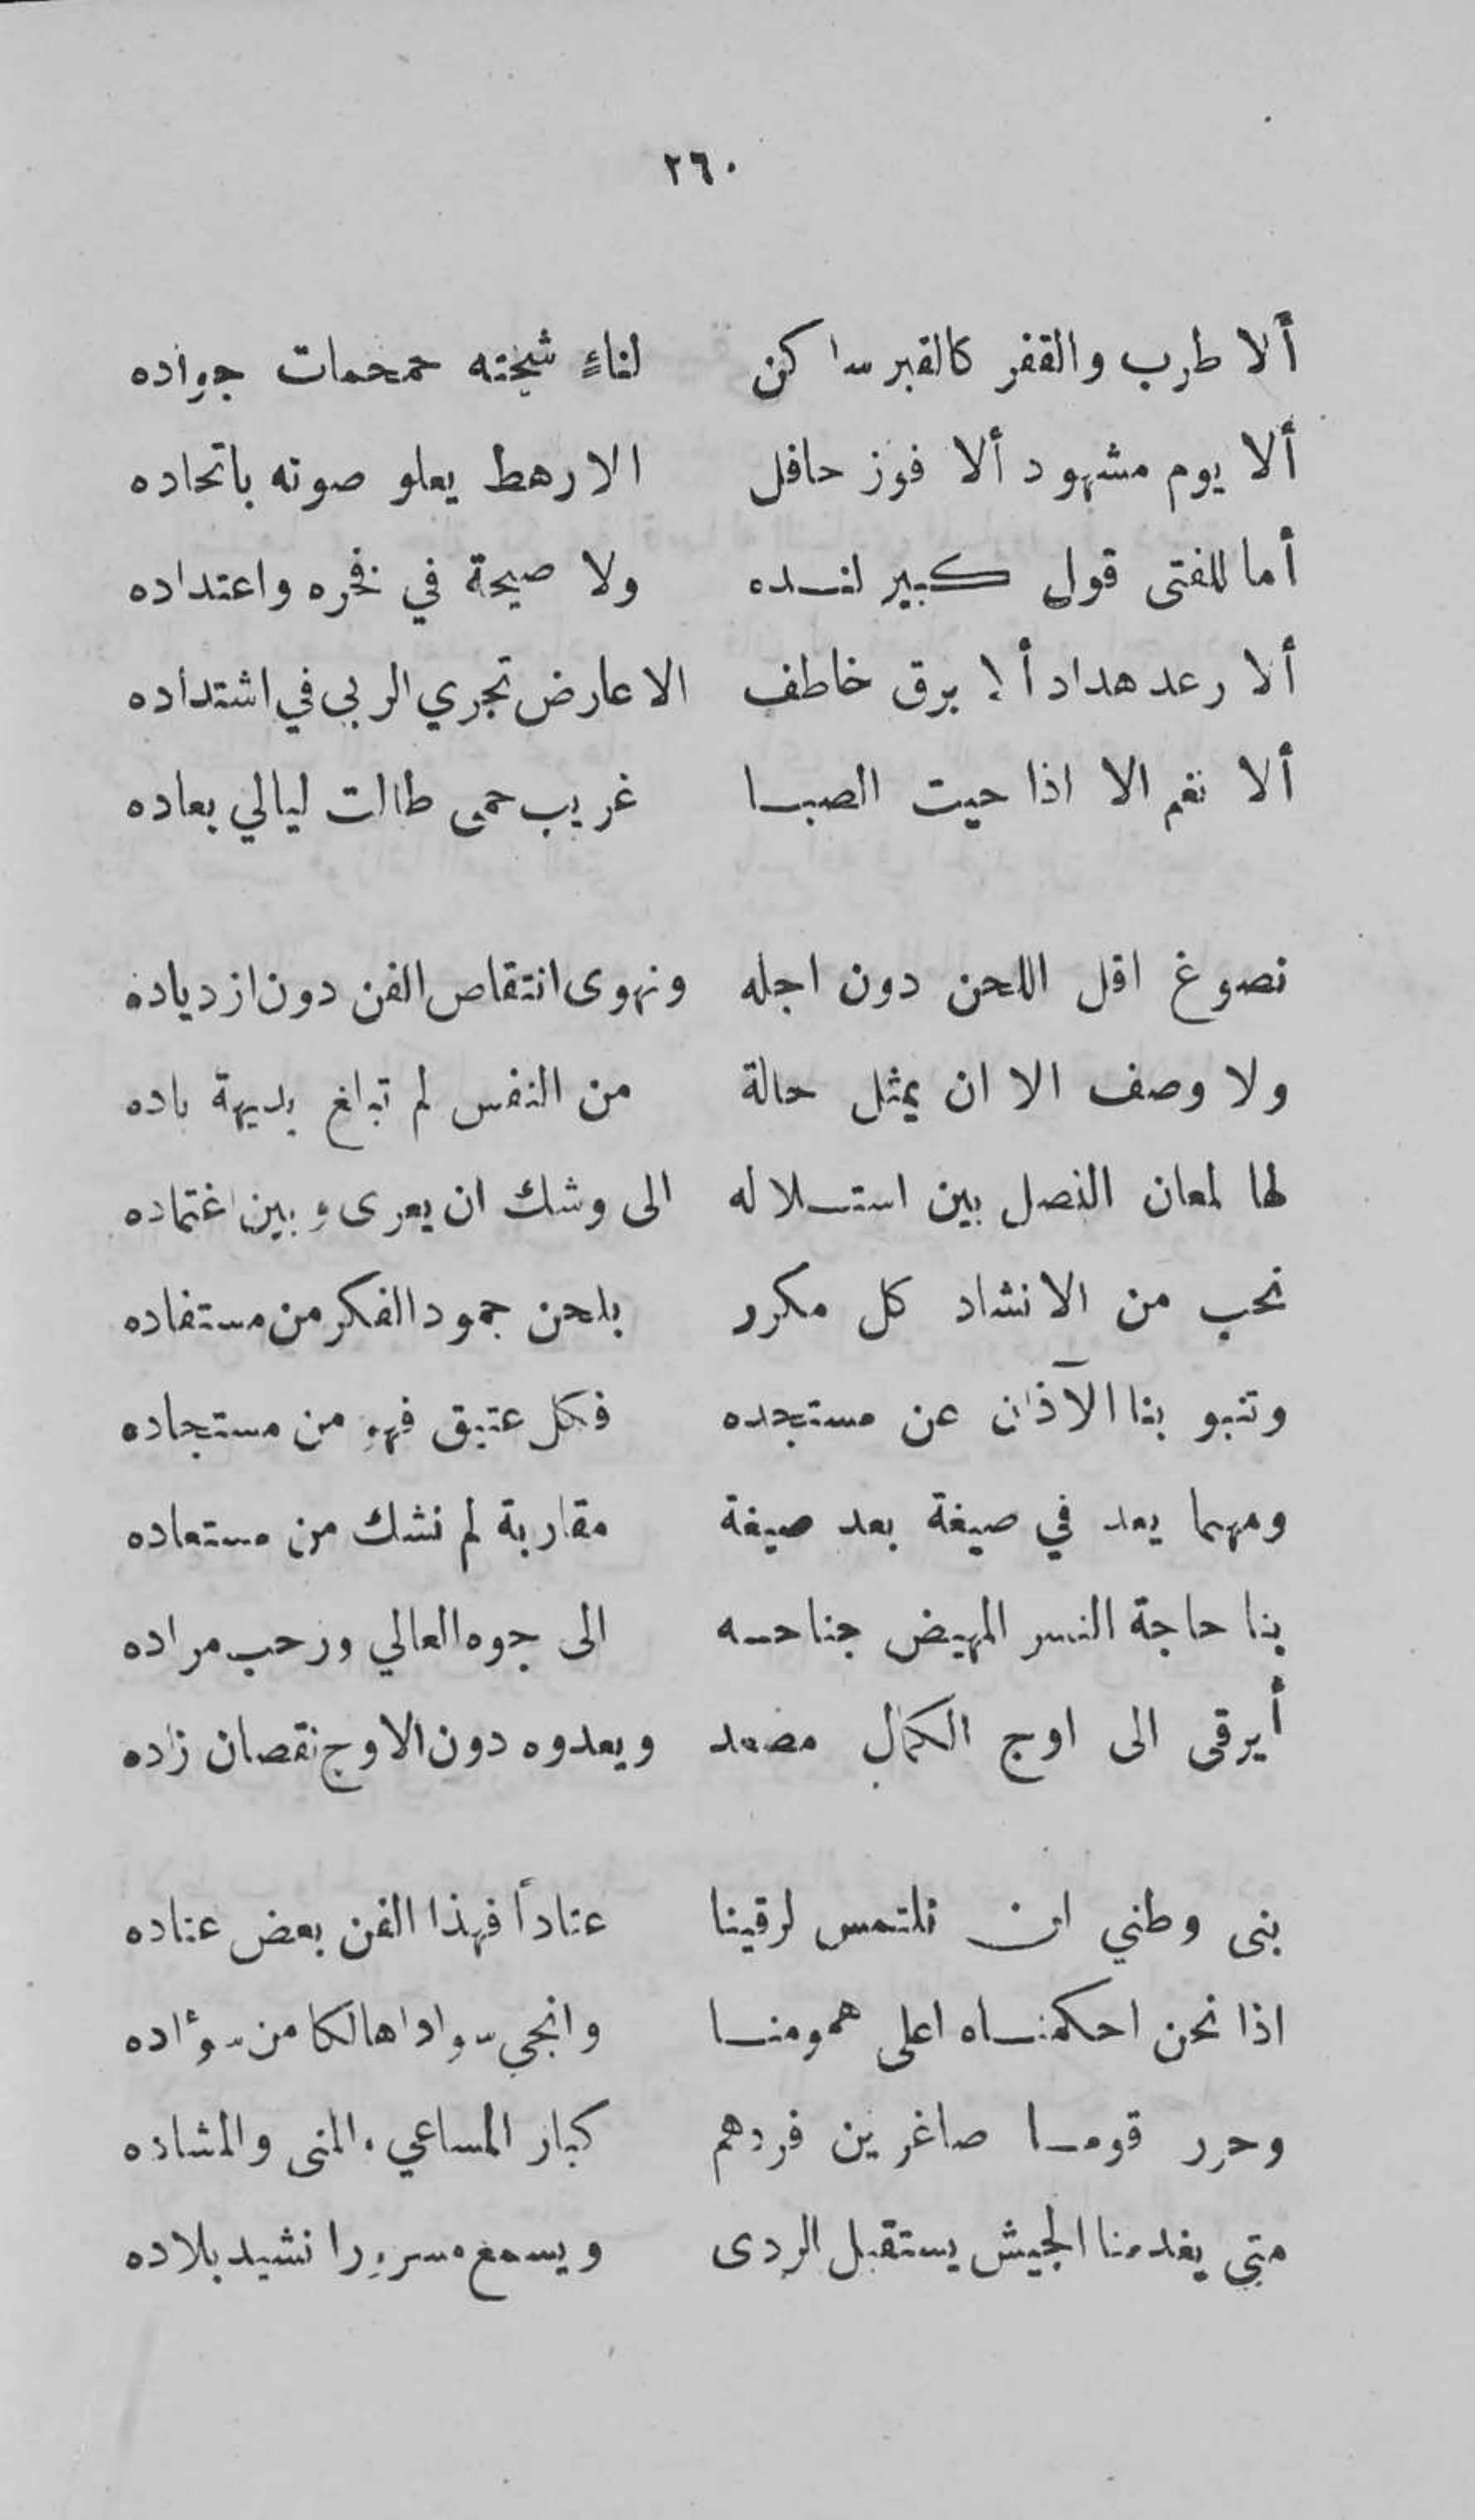 ٢٦٠
ألا طرب والقفر كالقبر ساكن لناءٍ شجته حمحمات جواده
ألا يوم مشهود ألا فوز حافل الا رهط يعلو صوته باتحاده
أما للفتى قول كبير لنده ولا صيحة في فخره واعتداده
ألا رعد هداد ألا برق خاطف الا عارض تجري الربى في اشتداده
ألا نغم الا اذا حيت الصبا غريب حمى طالت ليالي بعاده
نصوغ اقل اللحن دون اجله ونهوى انتقاص الفن دون ازدياده
ولا وصف الا ان يمثل حالة من النفس لم تبلغ بديهة باده
لها لمعان النصل بين استلاله الى وشك ان يعرى وبين اغتماده
نحب من الانشاد كل مكرر بلحن جمود الفكر من مستفاده
وتنبو بنا الآذان عن مستجده فكل عتيق فهو من مستجاده
ومهما يعد في صيغة بعد صيغة مقاربة لم نشك من مستعاده
بنا حاجة النسر المهيض جناحه الى جوه العالي ورحب مراده
أيرقى الى اوج الكمال مصعد ويعدوه دون الاوج نقصان زاده
بنى وطني ان نلتمس لرقينا عتاداً فهذا الفن بعض عتاده
اذا نحن احكمناه اعلى همومنا وانجى سوادا هالكا من سؤاده
وحرر قوما صاغرين فردهم كبار المساعي والمنى والمشاده
متى يغد منا الجيش يستقبل الردى ويسمع مسرورا نشيد بلاده